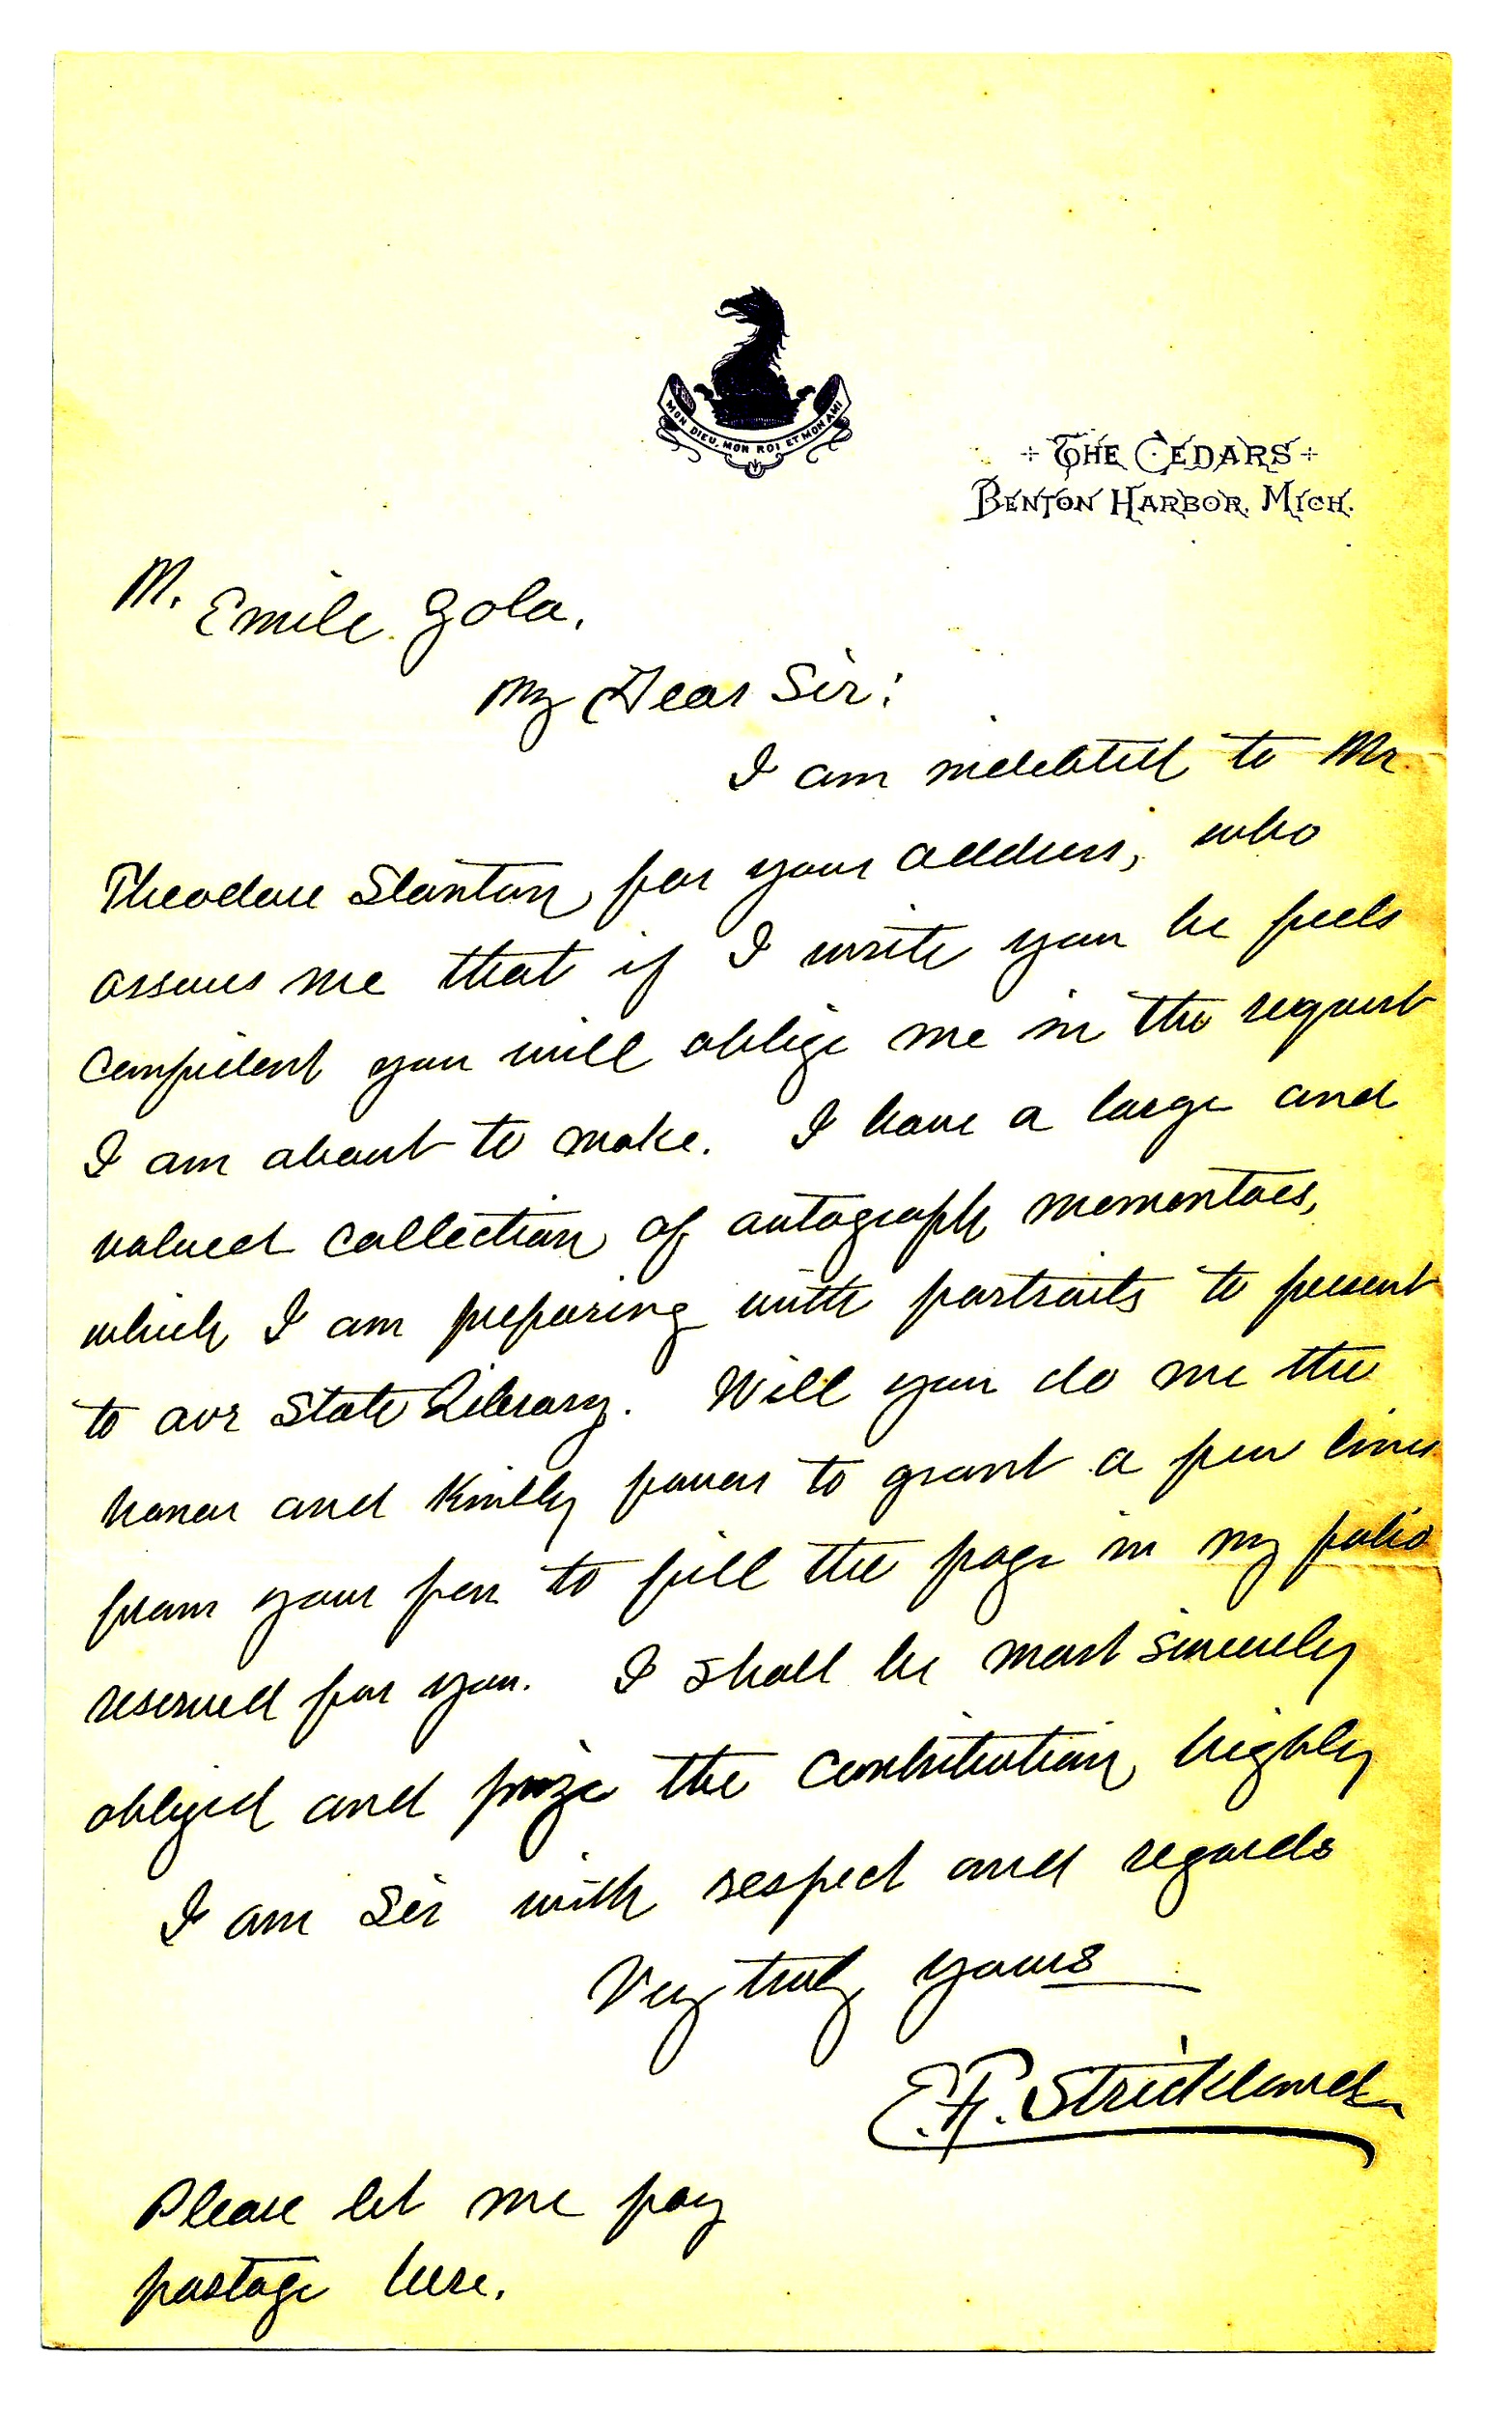 MON DIEU, MON ROI ET MON AMI
THE CEDARS
BENTON HARBOR, MICH.
M. Emile Zola,
My Dear Sir:
I am indebted to Mr
Theodore Stanton for your address, who
assures me that if I write you he feels
confident you will oblige me in the request
I am about to make. I have a large and
valued collection of autograph mementoes,
which I am preparing with portraits to present
to our State Library. Will you do me the
honor and kindly favor to grant a few lines
from your pen to fill the page in my folio
reserved for you. I shall be most sincerely
obliged and prize the contribution highly
I am Sir with respect and regards
Very truly yours
E. P. Strickland
Please let me pay
postage here.